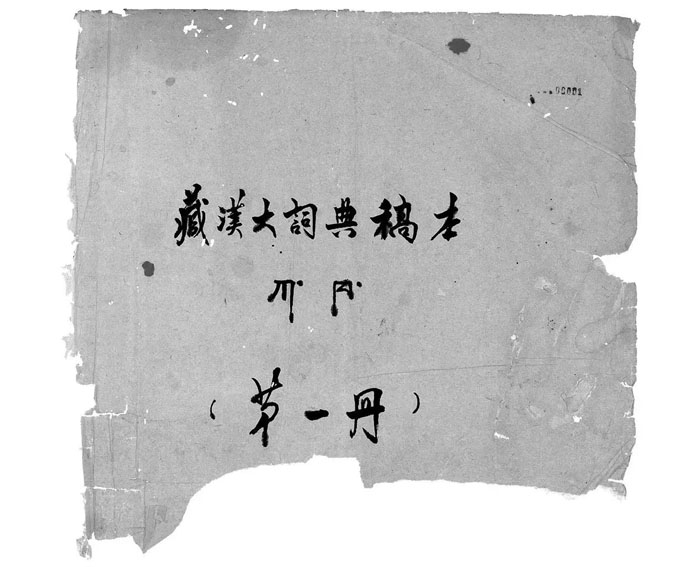 藏漢大詞典稿本
ཀ་ ཁ་
(第一冊)